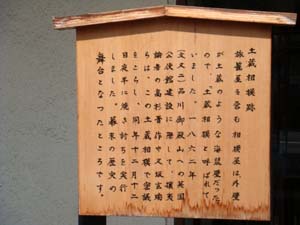 土蔵相模跡
旅籠屋を営む相模屋は、外壁
が土蔵のような海鼠壁だった
ので、「土蔵相模」と呼ばれて
いました。一八六二年
(文久二)品川御殿山への英国
公使館建設に際して、攘夷
論者の高杉晋作や久坂玄瑞
らは、この土蔵相模で密議
をこらし、同年十二月十二
日夜半に焼き討ちを実行
しました。幕末の歴史の
舞台となったところです。